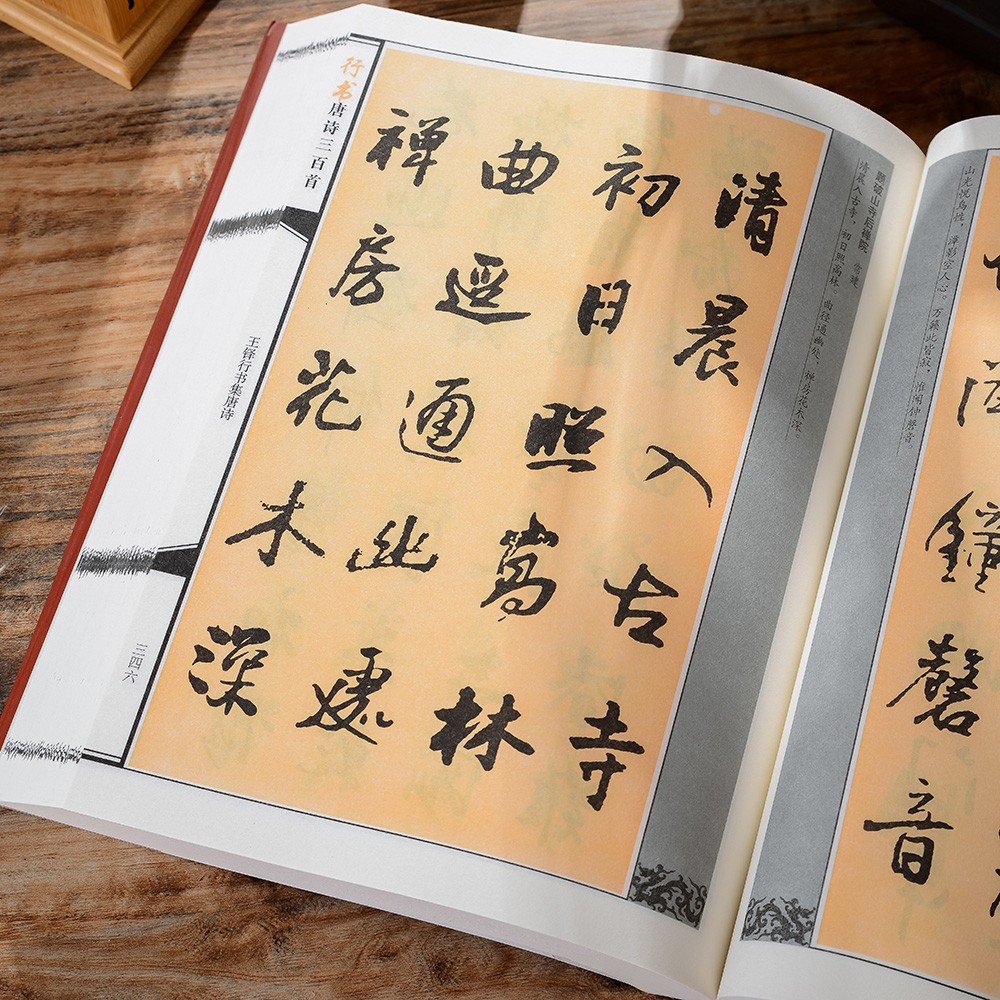 山光悦鸟性，潭影空人心。万籁此皆寂，惟闻钟磬音。
鐘磬音
题破山寺后禅院 常建
清晨入古寺，初日照高林。曲径通幽处，禅房花木深。
清晨入古寺
初日照高林
曲逕通幽處
禅房花木深
行书唐诗三百首
王铎行书集唐诗
三四六